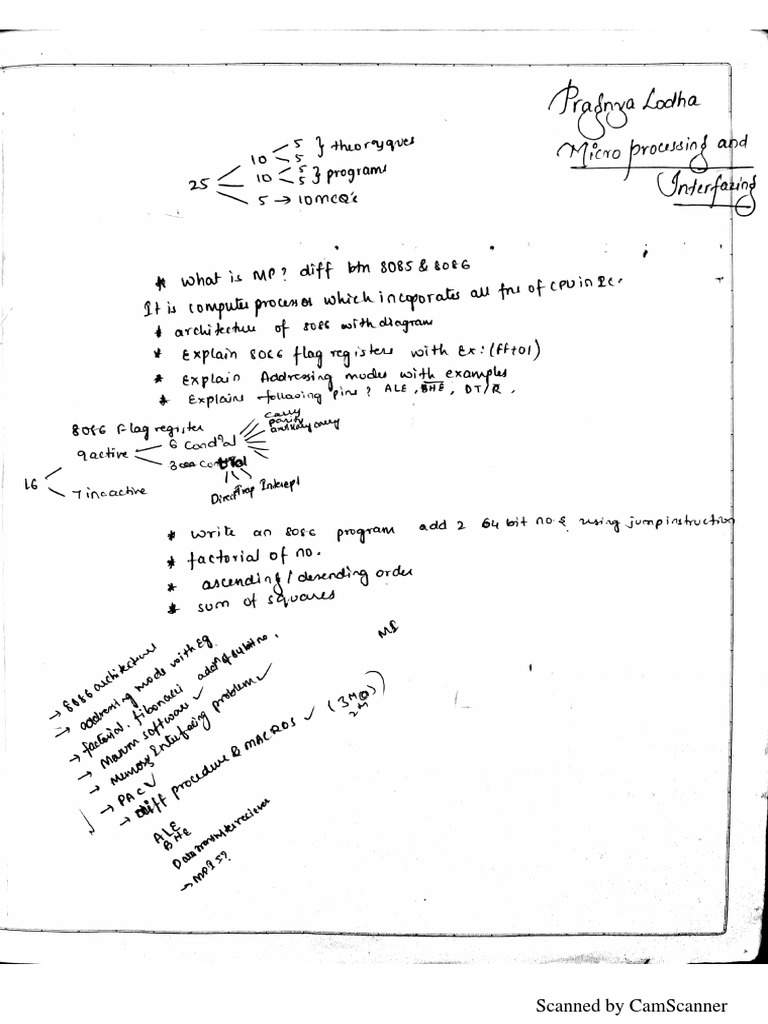 Pragnya Lodha
Micro processing and
Interfazing
25
10
5
5
} theoryques
10
5
5
} programs
5 → 10 MCQ's
* What is MP? diff btn 8085 & 8086
It is computer processor which incoporates all fns of CPU in Ic.
* architecture of 8086 with diagram
* Explain 8086 flag registers with Ex: (ff+01)
* Explain Addressing modes with examples
* Explain following pins? ALE, BHE, DT/R,
8086 flag register
16
9 active
6
carry
parity
3
Direct Trap
7 incactive
* write an 8086 program add 2 64 bit no's using jump instruction
* factorial of no.
* ascending / desending order
* sum of squares
→ 8086 architecture
→ addressing mode with Eg
→ factorial. fibonacci addn of 64 bit no.
→ software ✓
→ Memory Interfacing problem ✓
→ ✓
→ diff procedure & MACROS ✓
ALE
BHE
→ MPI 5?